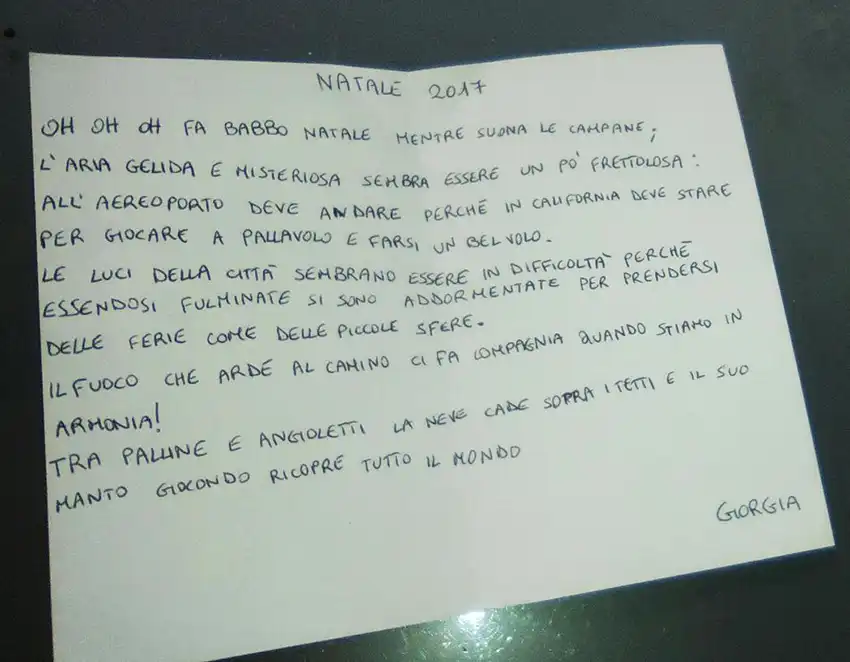 NATALE 2017
OH OH OH FA BABBO NATALE MENTRE SUONA LE CAMPANE;
L'ARIA GELIDA E MISTERIOSA SEMBRA ESSERE UN PO' FRETTOLOSA:
ALL'AEREOPORTO DEVE ANDARE PERCHÉ IN CALIFORNIA DEVE STARE
PER GIOCARE A PALLAVOLO E FARSI UN BEL VOLO.
LE LUCI DELLA CITTÀ SEMBRANO ESSERE IN DIFFICOLTÀ PERCHÉ
ESSENDOSI FULMINATE SI SONO ADDORMENTATE PER PRENDERSI
DELLE FERIE COME DELLE PICCOLE SFERE.
IL FUOCO CHE ARDE AL CAMINO CI FA COMPAGNIA QUANDO STIAMO IN
ARMONIA!
TRA PALLINE E ANGIOLETTI LA NEVE CADE SOPRA I TETTI E IL SUO
MANTO GIOCONDO RICOPRE TUTTO IL MONDO
GIORGIA